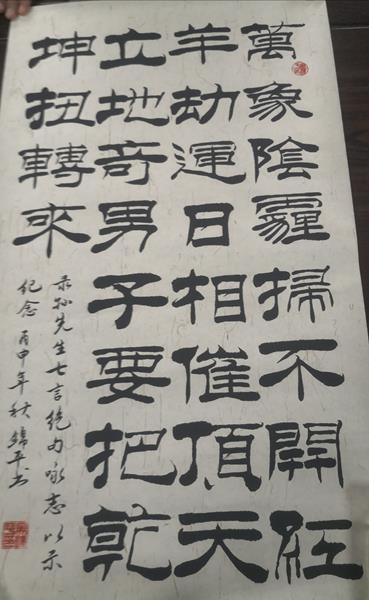 萬象陰霾掃不開紅
羊劫運日相催頂天
立地奇男子要把乾
坤扭轉來
录孙先生七言绝句咏志以示
纪念 丙申年秋 錦平书